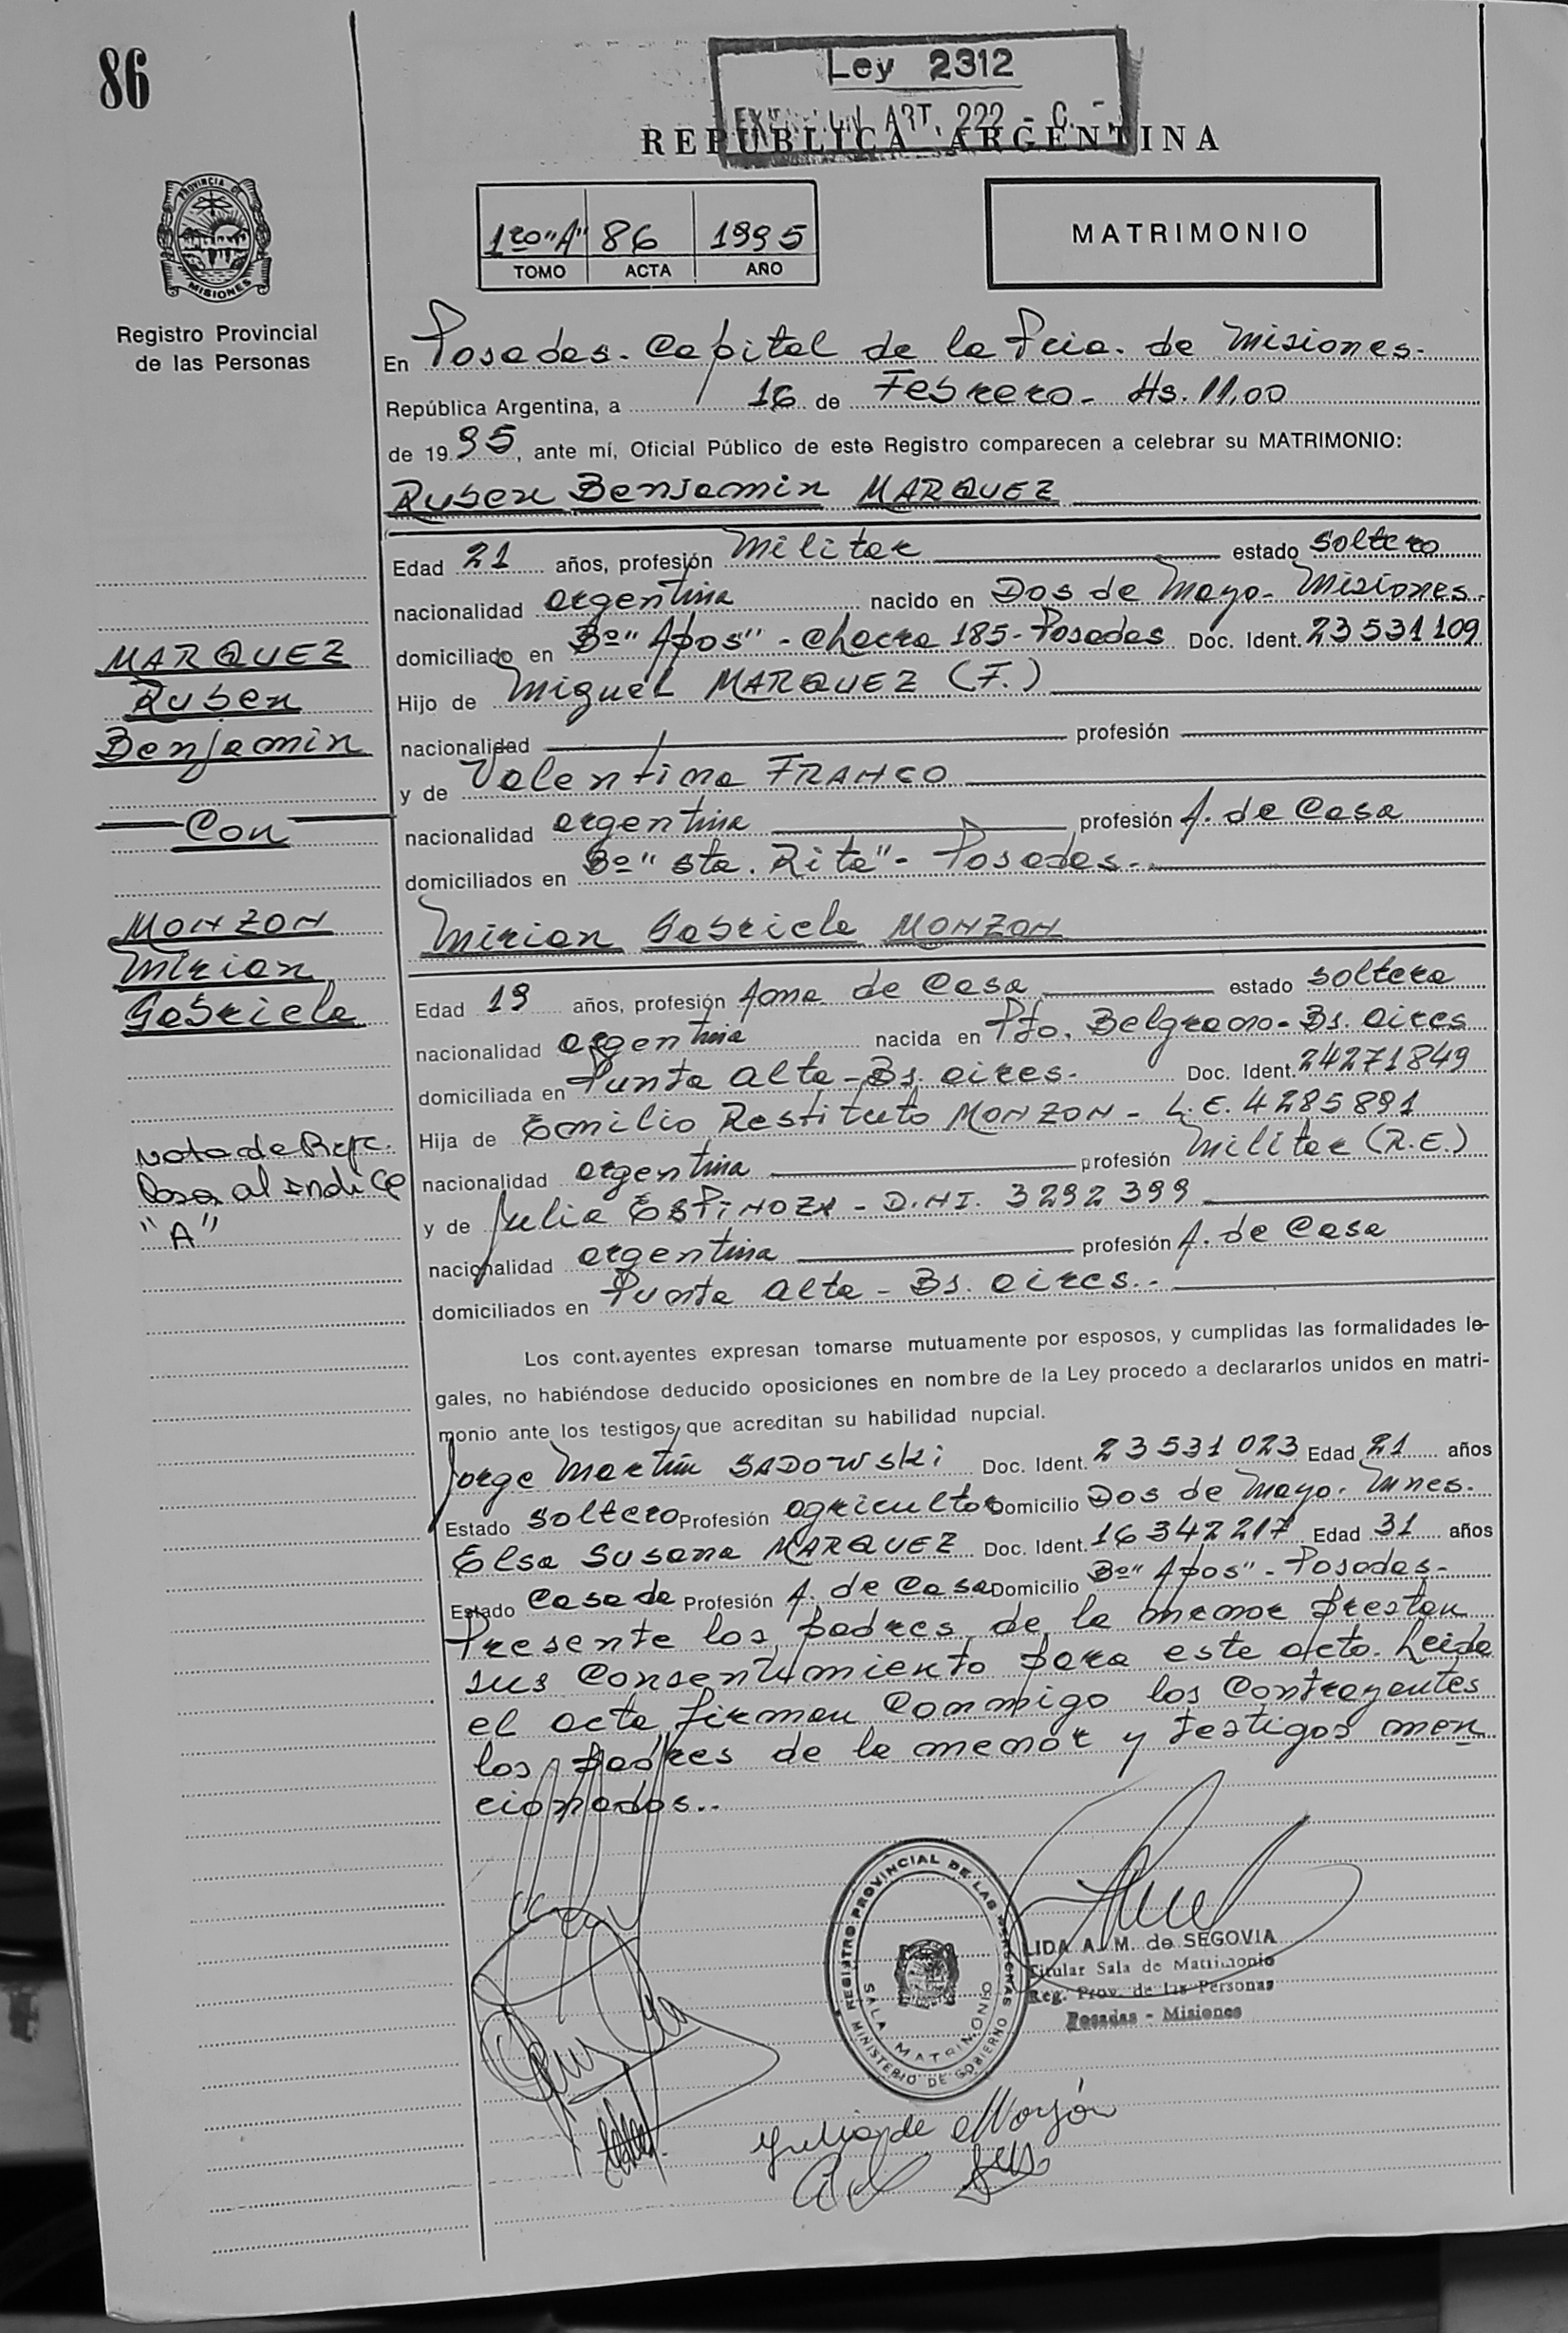 86
Ley 2312
ART. 222 - C.
REPUBLICA ARGENTINA
PROVINCIA DE
MISIONES
Registro Provincial
de las Personas
1ro "A" 86 1995
TOMO ACTA AÑO
MATRIMONIO
En Posadas. Capital de la Pcia. de Misiones.
República Argentina, a 16 de Febrero - Hs. 11,00
de 1995, ante mí, Oficial Público de este Registro comparecen a celebrar su MATRIMONIO:
Ruben Benjamin MARQUEZ
Edad 21 años, profesión Militar estado soltero
nacionalidad argentina nacido en Dos de Mayo - Misiones.
domiciliado en Bº "Apos" - Chacra 185 - Posadas Doc. Ident. 23531109
Hijo de Miguel MARQUEZ (F.)
nacionalidad profesión
y de Valentina FRANCO
nacionalidad argentina profesión A. de Casa
domiciliados en Bº "Sta. Rita" - Posadas.-
MARQUEZ
Ruben
Benjamin
Con
MONZON
Mirian
Gabriela
Mirian Gabriela MONZON
Edad 19 años, profesión Ama de Casa estado soltera
nacionalidad argentina nacida en Pto. Belgrano - Bs. aires
domiciliada en Punta alta - Bs. aires.- Doc. Ident. 24271849
Hija de Emilio Restituto MONZON - L.E. 4285891
nacionalidad argentina profesión Militar (R.E.)
y de Julia ESPINOZA - D.NI. 3292399
nacionalidad argentina profesión A. de Casa
domiciliados en Punta alta - Bs. aires.-
Nota de Ref.
Pasa al Indice
"A"
Los cont.ayentes expresan tomarse mutuamente por esposos, y cumplidas las formalidades le-
gales, no habiéndose deducido oposiciones en nombre de la Ley procedo a declararlos unidos en matri-
monio ante los testigos que acreditan su habilidad nupcial.
Jorge Martin SADOWSKI Doc. Ident. 23531023 Edad 21 años
Estado soltero Profesión agricultor Domicilio Dos de Mayo. Mnes.
Elsa Susana MARQUEZ Doc. Ident. 16342217 Edad 31 años
Estado Casada Profesión A. de Casa Domicilio Bº "Apos" - Posadas.-
Presente los padres de la menor prestan
sus Consentimiento para este acto. Leida
el acta, firman Conmigo los Contrayentes
los padres de la menor y testigos men
cionados..
REGISTRO PROVINCIAL DE LAS PERSONAS
SALA MATRIMONIO
MINISTERIO DE GOBIERNO
LIDA A. M. de SEGOVIA
Titular Sala de Matrimonio
Reg. Prov. de las Personas
Posadas - Misiones
Julia de Monzón